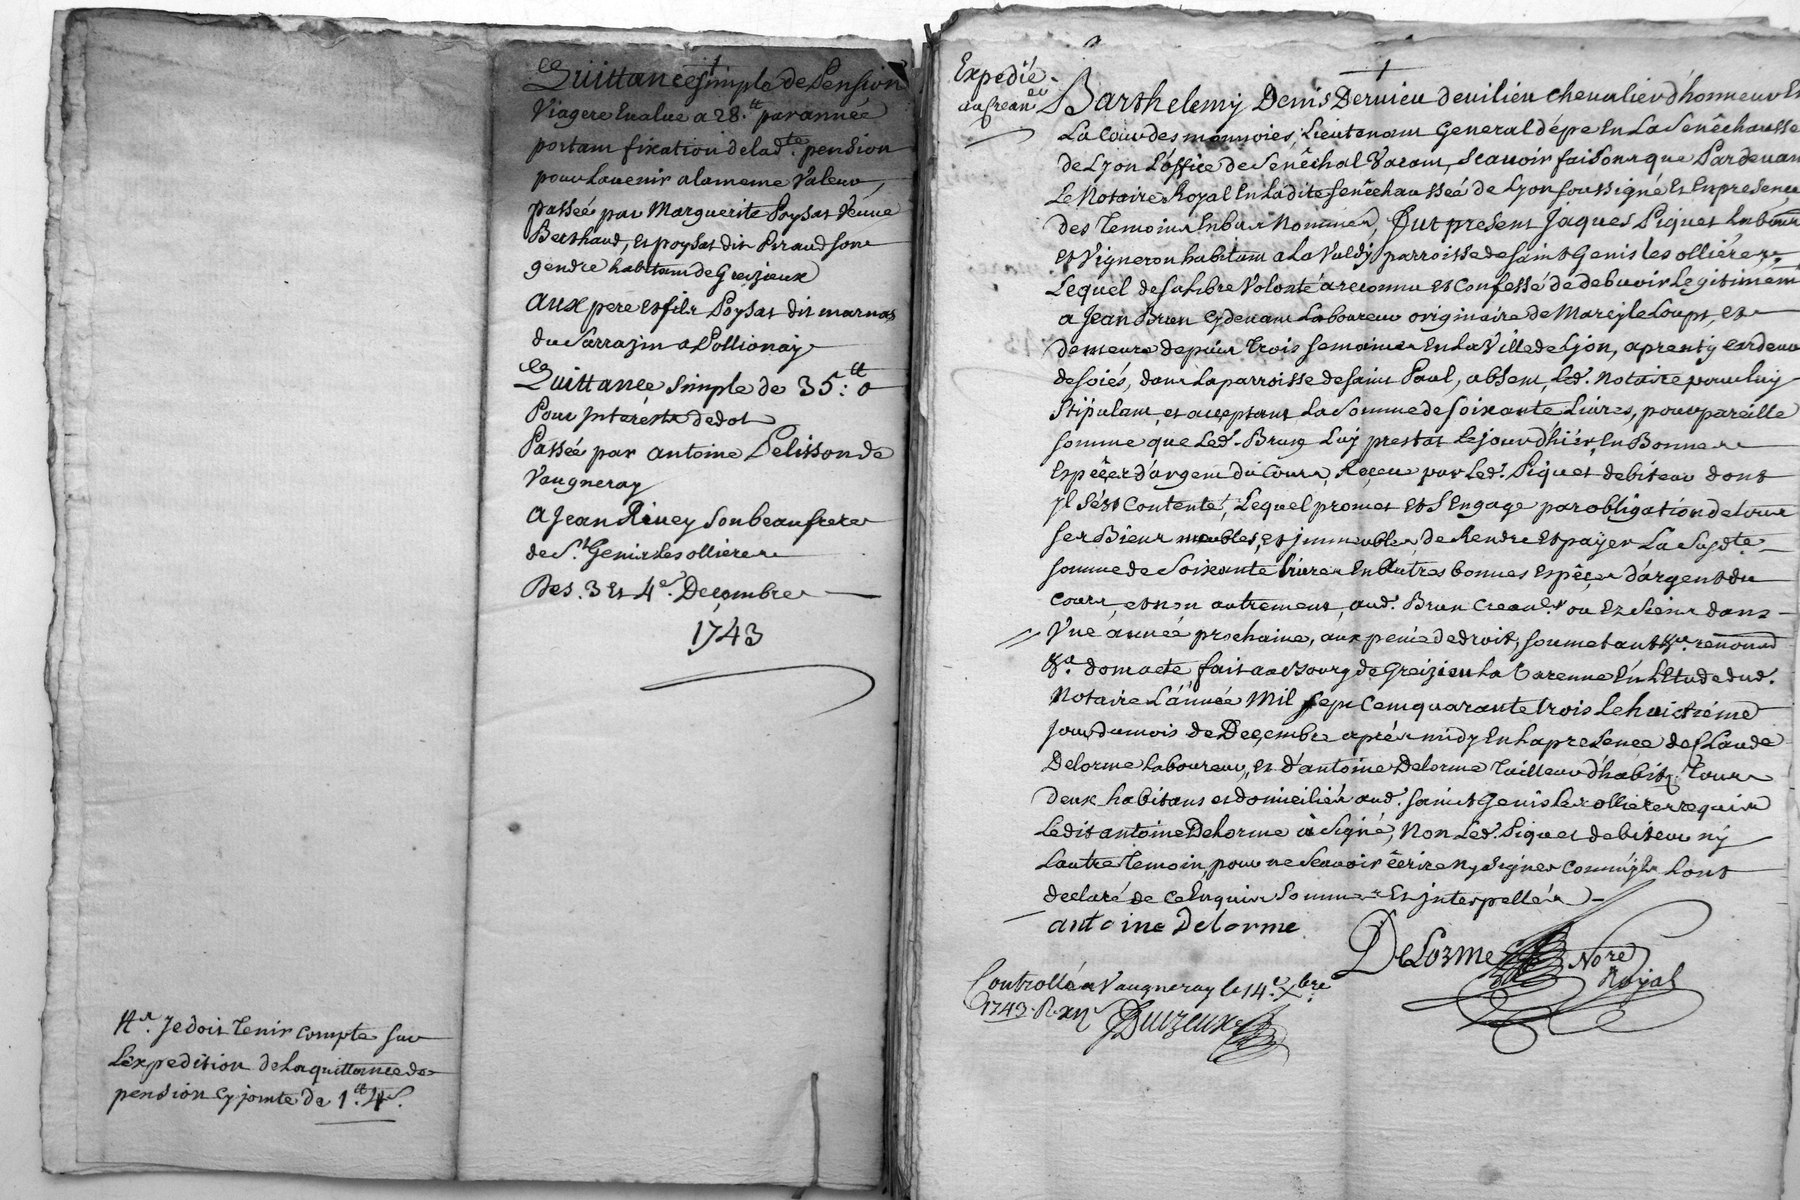 Quittance simple de Pension
Viagere Evalue a 28.tt par année
portant fixation de lad.te pension
pour Lavenir a la meme Valeur,
passée par Marguerite Poysat Veuve
Berthaud, et poysat dit Piraud son
gendre habitant de Greizieux
aux pere et fils Poysat dit marnas
du Sarrazin a Pollionay
Quittance simple de 35.tt 0
Pour Interests de dot
Passée par antoine Pelisson de
Vaugneray
a Jean Riuey son beau frere
de S.t Genis les ollieres
Des .3 et 4.e Decembre
1743
N.a Je dois tenir compte sur
L'expedition de la quittance de
pension cy jointe de 1.tt 4.s
Expedié
au Crean.er
Barthelemy Denis Dervieu de vilieu chevalier d'honneur En
La Cour des monnoies, Lieutenant General d'épé En La Senêchaussé
de Lyon L'office de Senêchal Vacant, Scavoir faisons que Pardevan
Le Notaire Royal En Ladite Senêchaussée de Lyon soussigné Et En presence
des Temoins En bas Nommes, Fut present Jaques Piquet Laboureur
et Vigneron habitant a La Valdy parroisse de saint Genis les ollières,
Lequel de sa Libre Volonté a reconnu et Confessé de debuoir Legitimemt
a Jean Brun Cy devant Laboureur originaire de Marcy le Loups, et
demeure depuis trois semaines En La Ville de Lyon, aprenty cardeur
de soiés, dans La parroisse de saint Paul, absent, Led. Notaire pour luy
Stipulant et acceptant La Somme de soixante Livres, pour pareille
somme que Led. Brun Luy prestat Le jour d'hiér, En Bonnes
Espêces d'argent du Cours, Reçeu par Led. Piquet debiteur dont
Jl s'ést Contenté, Lequel promet Et s'Engage par obligation de tous
ses Biens meubles, et jmmeubles, de Rendre Et payer La Susd.te
somme de Soixante Livres En Autres bonnes Espêces d'argent du
Cours, et non autrement, aud. Brun Crean.er ou Ez siens dans
Vne année prochaine, aux peine de droit, soumettant &.a renoncé
&.a dont acte, fait au Bourg de Greizieu La Varenne En L'Etude dud.
Notaire L'année Mil sept Cent quarante trois Le huictiéme
jour du mois de Decembre aprés midy En La presence de Claude
Delorme Laboureur, et d'antoine Delorme Tailleur d'habits, Tous
deux habitans et domiciliés aud. saint Genis Les ollieres requis
Ledit antoine Delorme à Signé, Non Led. Piquet debiteur ny
L'autre temoin, pour ne Scavoir écrire ny Signer Comme jls L'ont
declaré de ce Enquis Sommés Et jnterpellés
antoine Delorme
DeLorme No.re
Royal
Controllé a Vaugneray le 14.e Xbre
1743. R. xij
Duizeux